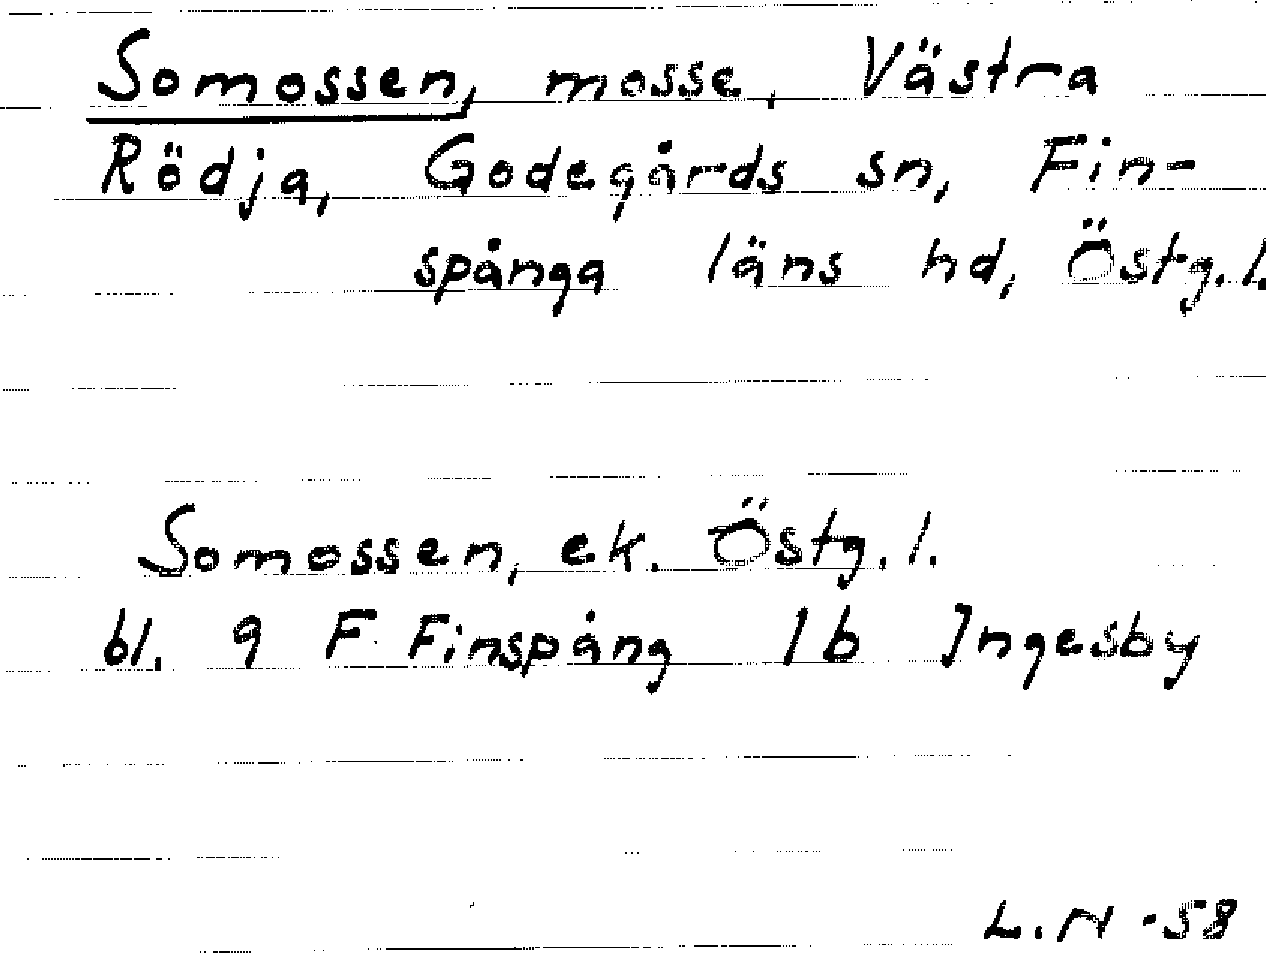 Somossen, mosse, Västra
Rödja, Godegårds sn, Fin-
spånga läns hd, Östg. l.
Somossen, ek. Östg. l.
bl. 9 F Finspång 1b Ingesby
L. N -58